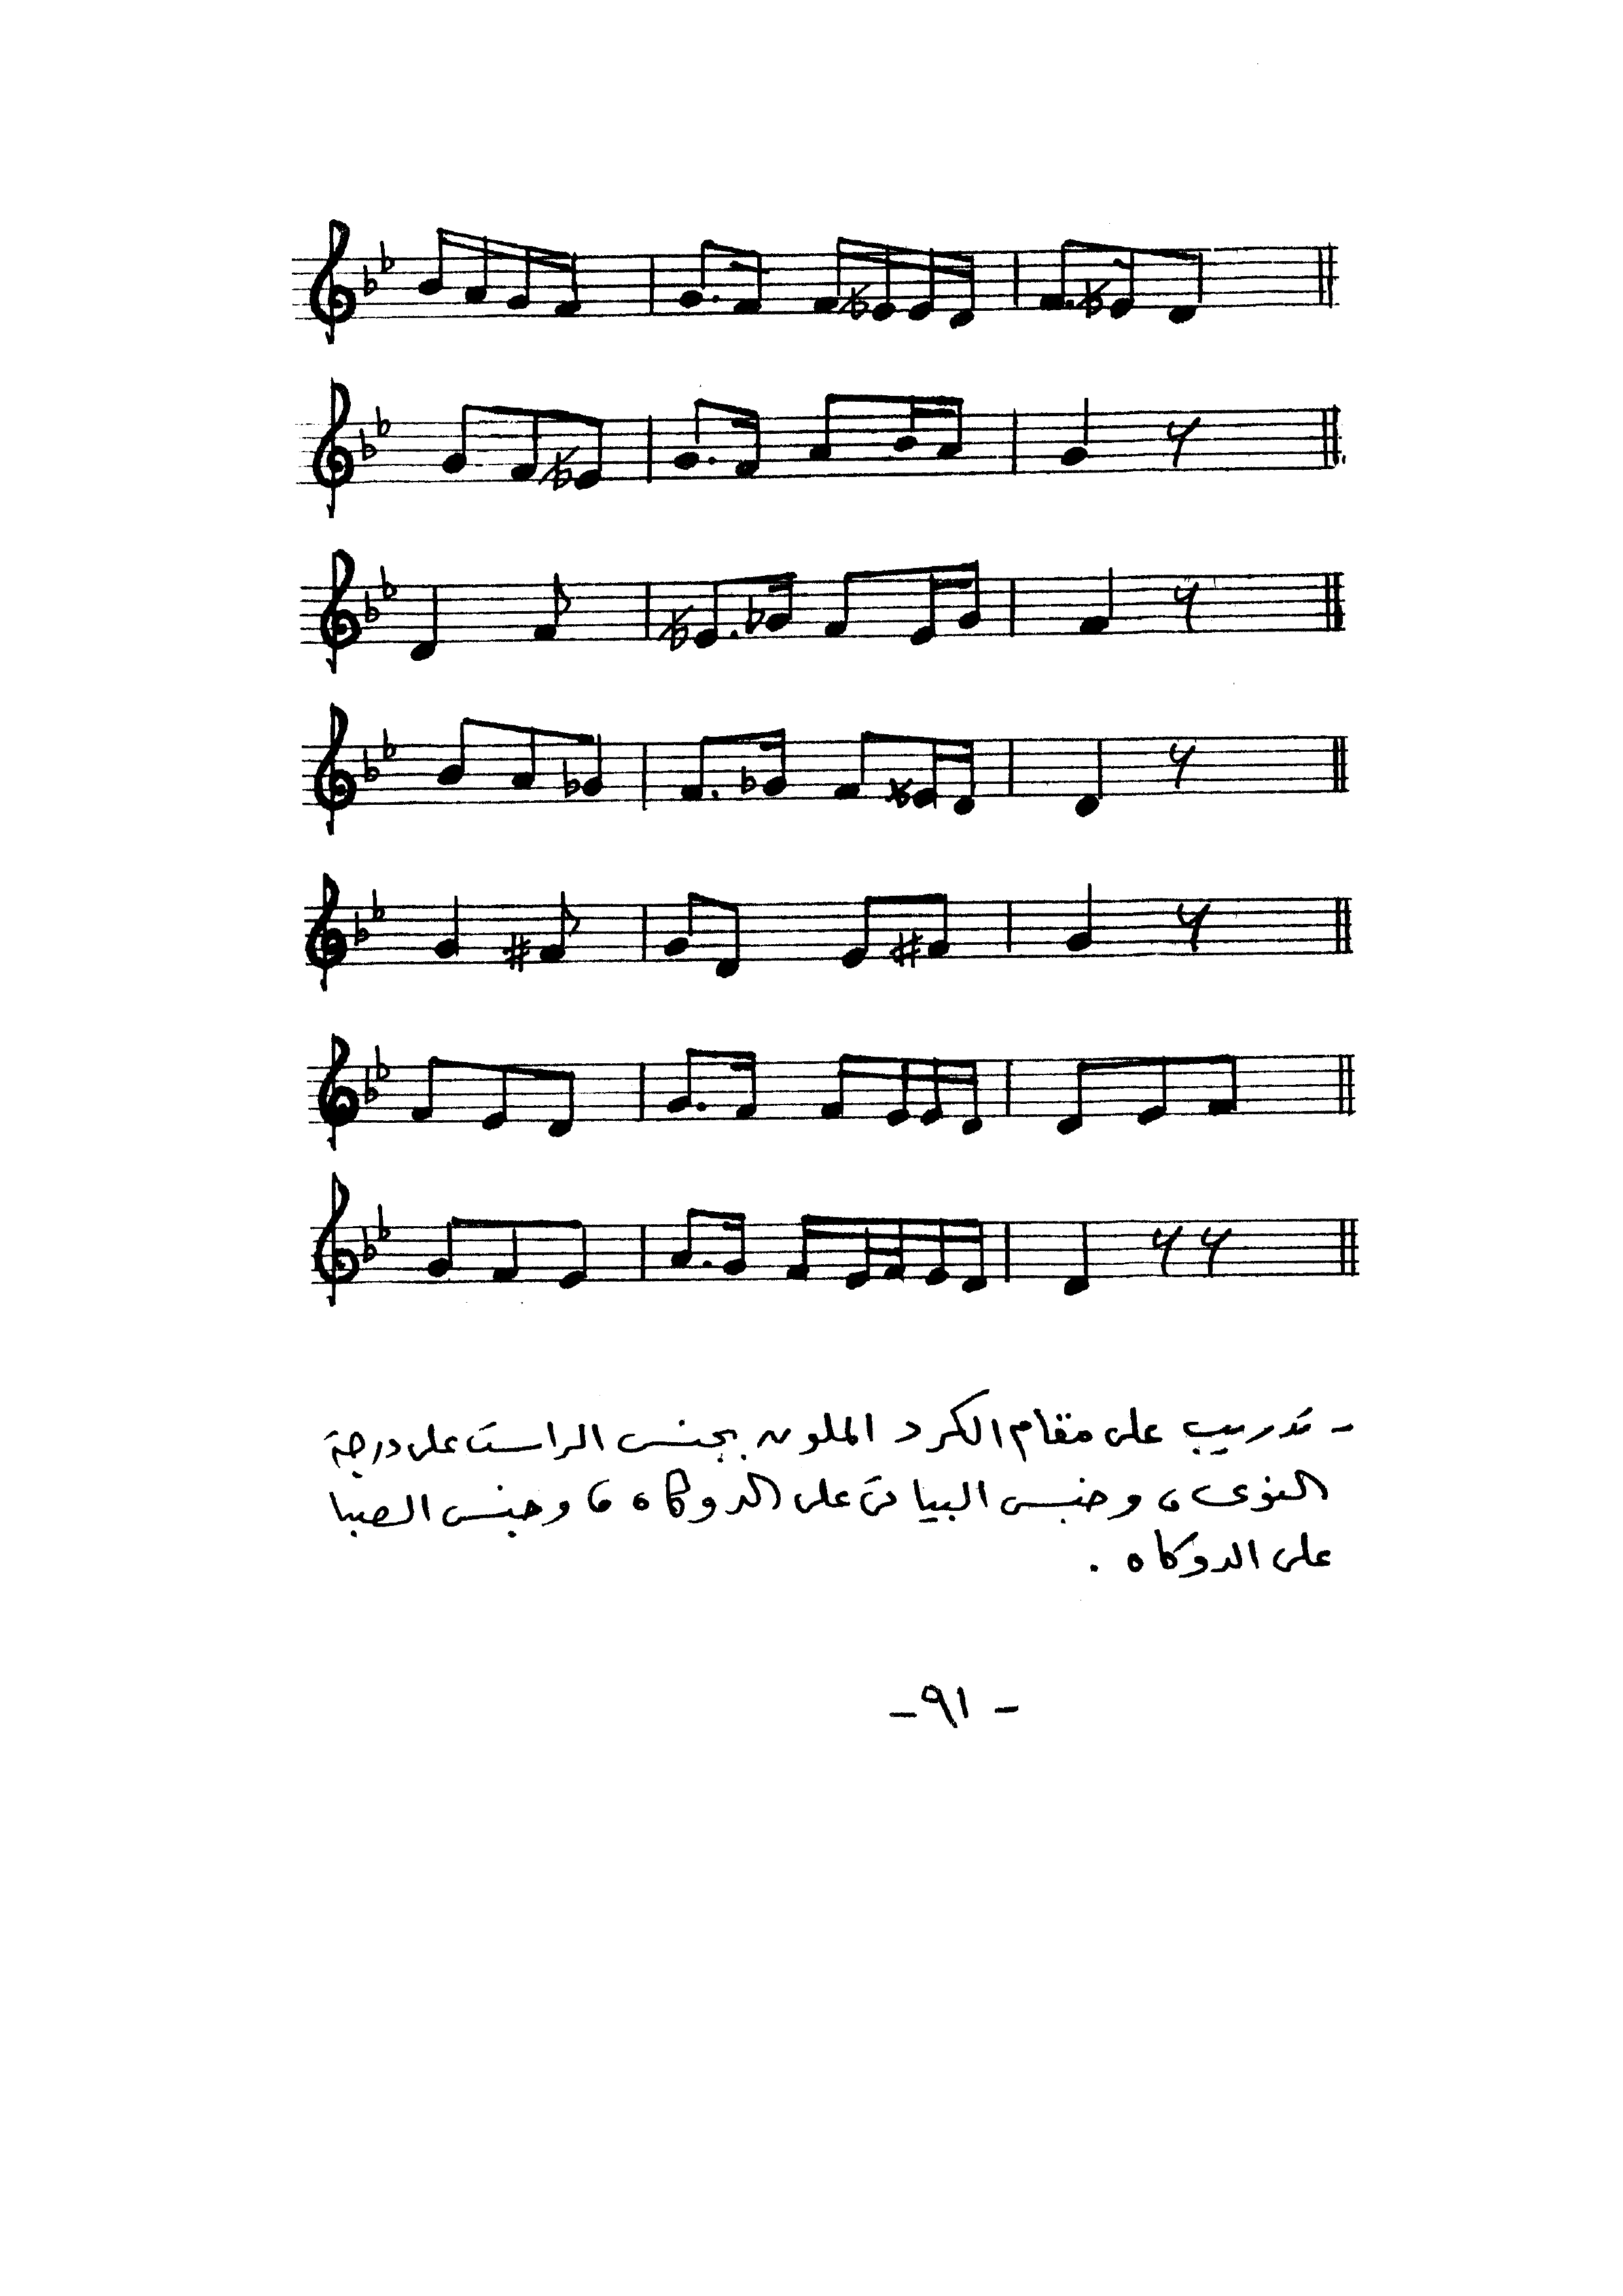 - تدريب على مقام الكرد الملون بجنس الراست على درجة
النوى ، وجنس البياتي على الدوكاه ، وجنس الصبا
على الدوكاه .
- ٩١ -